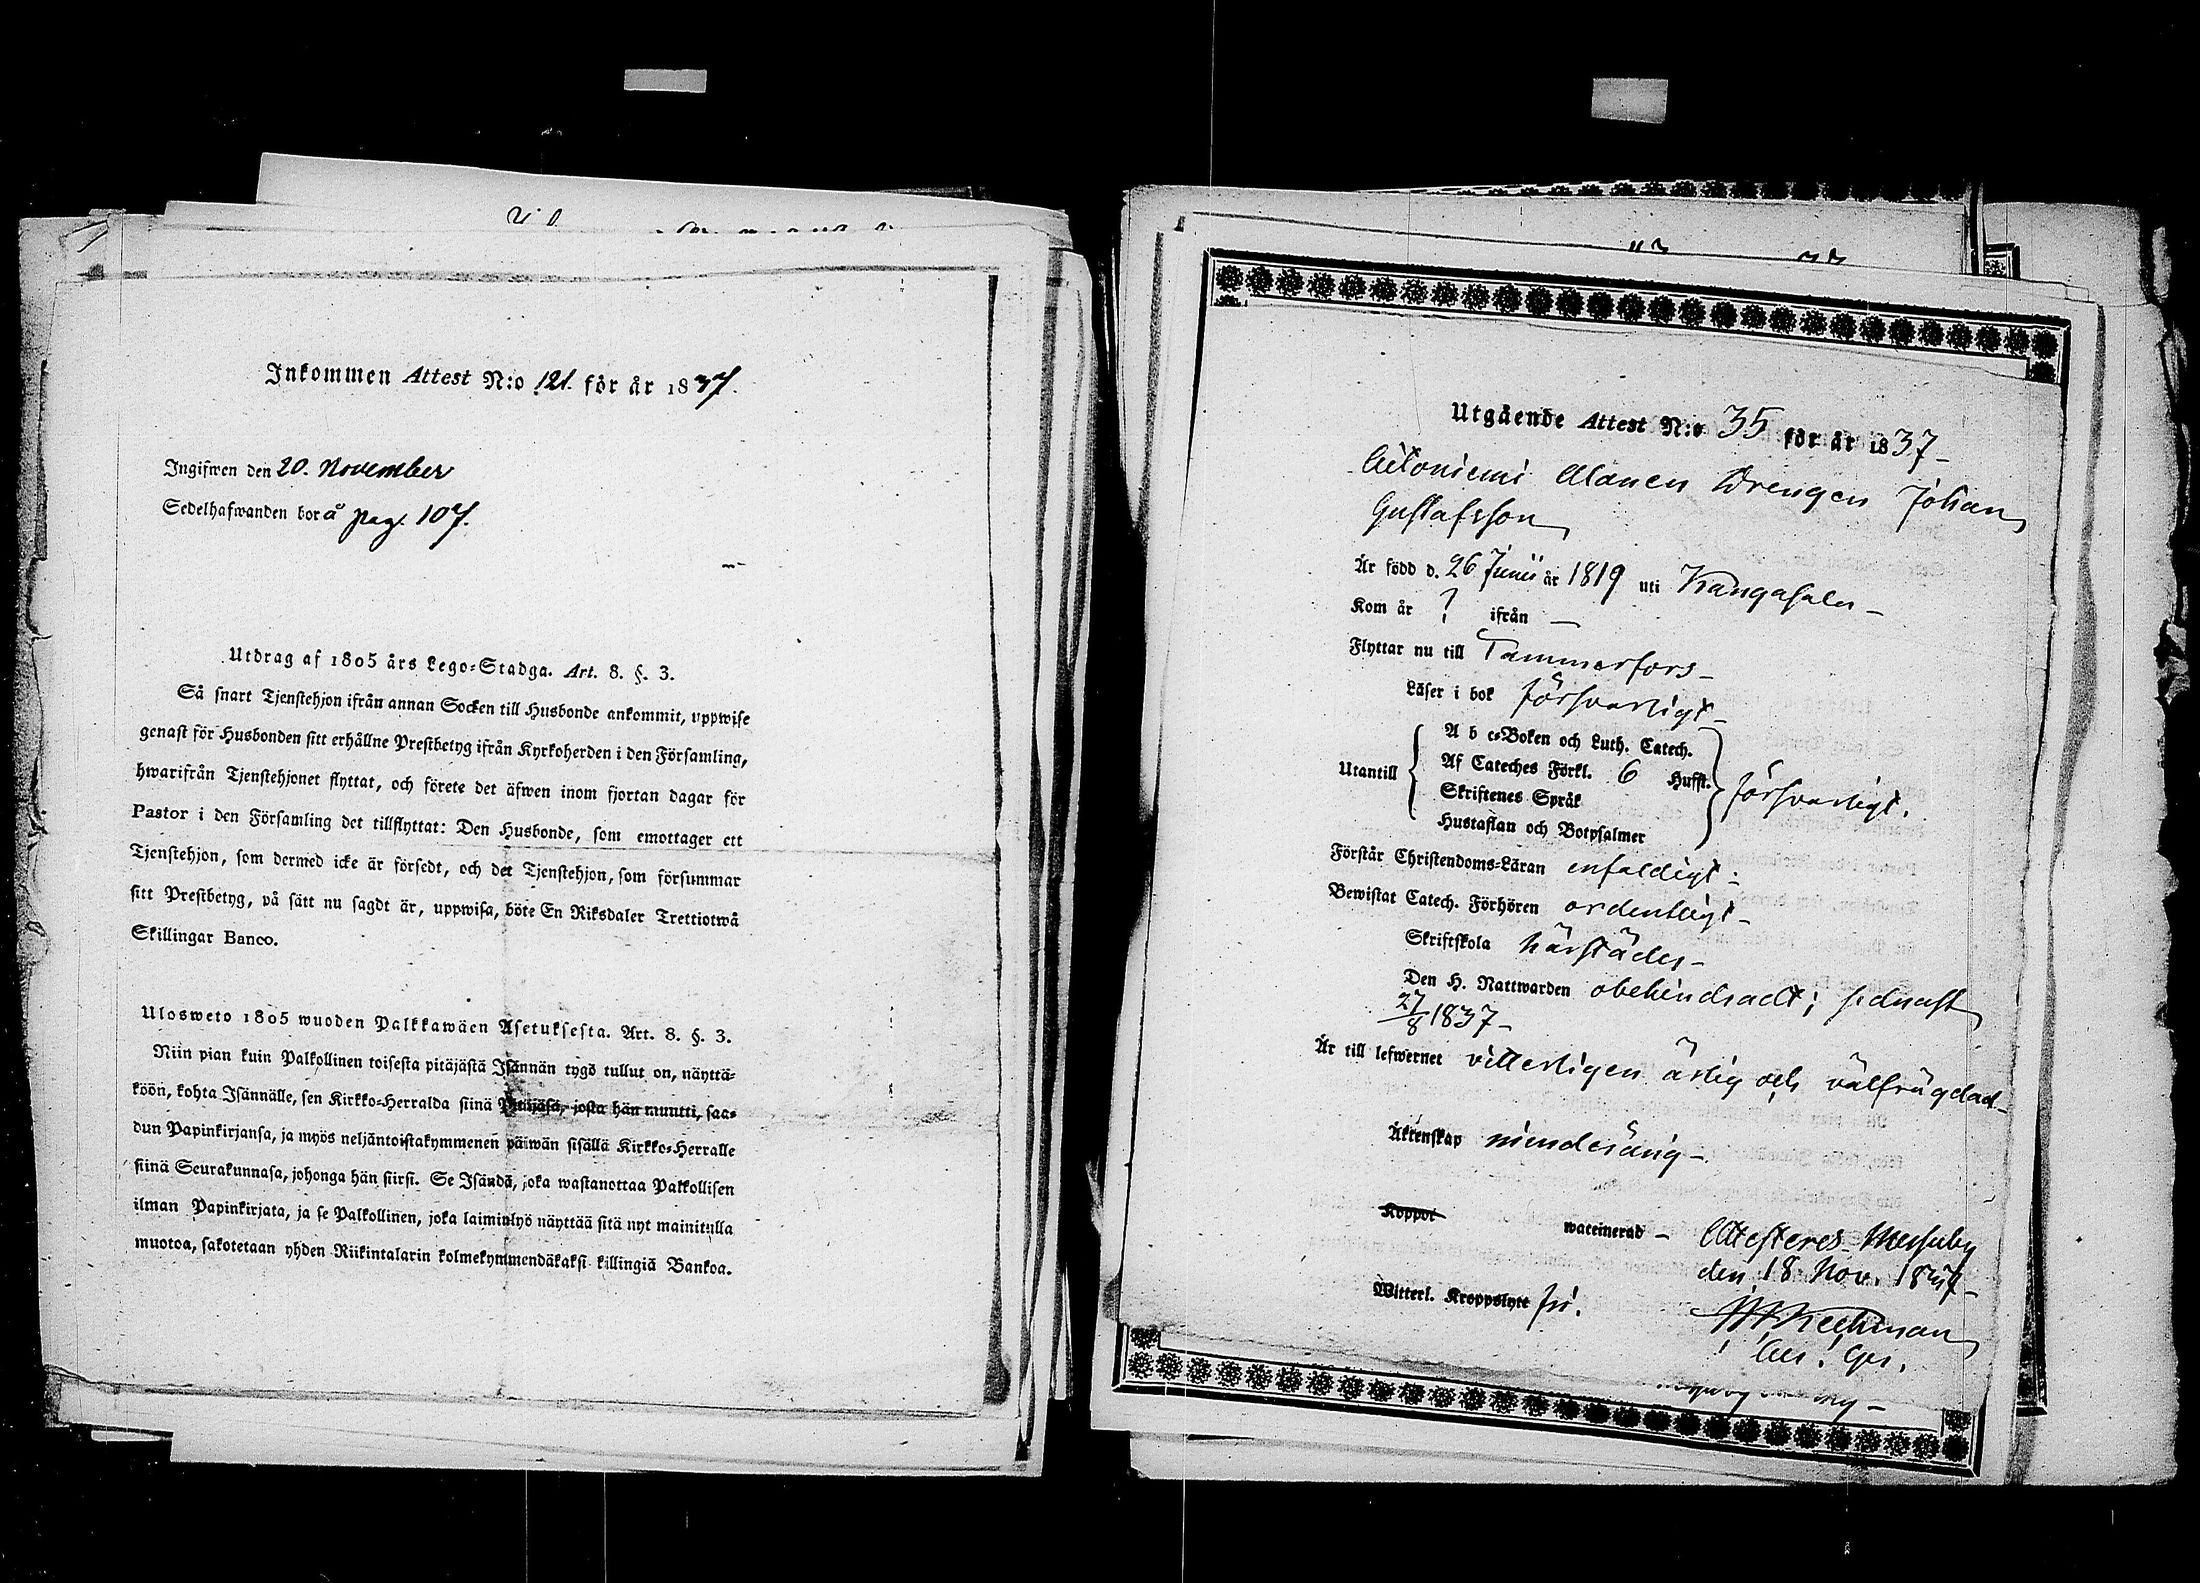 Inkommen Attest N:o 121. för år 1837.
Ingifwen den 20. November
Sedelhafwanden bor å pag. 107.
Utdrag af 1805 års Lego-Stadga. Art. 8. §. 3.
Så snart Tjenstehjon ifrån annan Socken till Husbonde ankommit, uppwise
genast för Husbonden sitt erhållne Prestbetyg ifrån Kyrkoherden i den Församling,
hwarifrån Tjenstehjonet flyttat, och förete det äfwen inom fjortan dagar för
Pastor i den Församling det tillflyttat: Den Husbonde, som emottager ett
Tjenstehjon, som dermed icke är försedt, och det Tjenstehjon, som försummar
sitt Prestbetyg, på sätt nu sagdt är, uppwisa, böte En Riksdaler Trettiotwå
Skillingar Banco.
Ulosweto 1805 wuoden Palkkawäen Asetuksesta. Art. 8. §. 3.
Niin pian kuin Palkollinen toisesta pitäjästä Isännän tygö tullut on, näyttä-
köön, kohta Isännälle, sen Kirkko-Herralda siinä Pitäjäsä, josta hän muutti, saa-
dun Papinkirjansa, ja myös neljäntoistakymmenen päiwän sisällä Kirkko-Herralle
siinä Seurakunnasa, johonga hän siirsi. Se Isändä, joka wastanottaa Palkollisen
ilman Papinkirjata, ja se Palkollinen, joka laiminlyö näyttää sitä nyt mainitulla
muotoa, sakotetaan yhden Riikintalarin kolmekymmendäkaksi killingiä Bankoa.
Utgående Attest N:o 35 för år 1837-
Aitoniemi Alanen Drengen Johan
Gustafsson
Är född d. 26 Junii år 1819 uti Kangasala -
Kom år ? ifrån -
Flyttar nu till Tammerfors -
Läser i bok försvarligt -
A b c-Boken och Luth. Catech.
Utantill Af Cateches Förkl. 6 Hufst. försvarligt.
Skriftenes Språk
Hustaflan och Botpsalmer
Förstår Christendoms-Läran enfaldigt -
Bewistat Catech. Förhören ordentligt -
Skriftskola härstädes -
Den H. Nattwarden obehindradt; sednast
27/8 1837 -
Är till lefwernet vitterligen ärlig och välfrägdad -
Äktenskap
Koppor waccinerad - Attesteres. Messuby
den 18 Nov. 1837 -
Witterl. Kroppslyte fri.